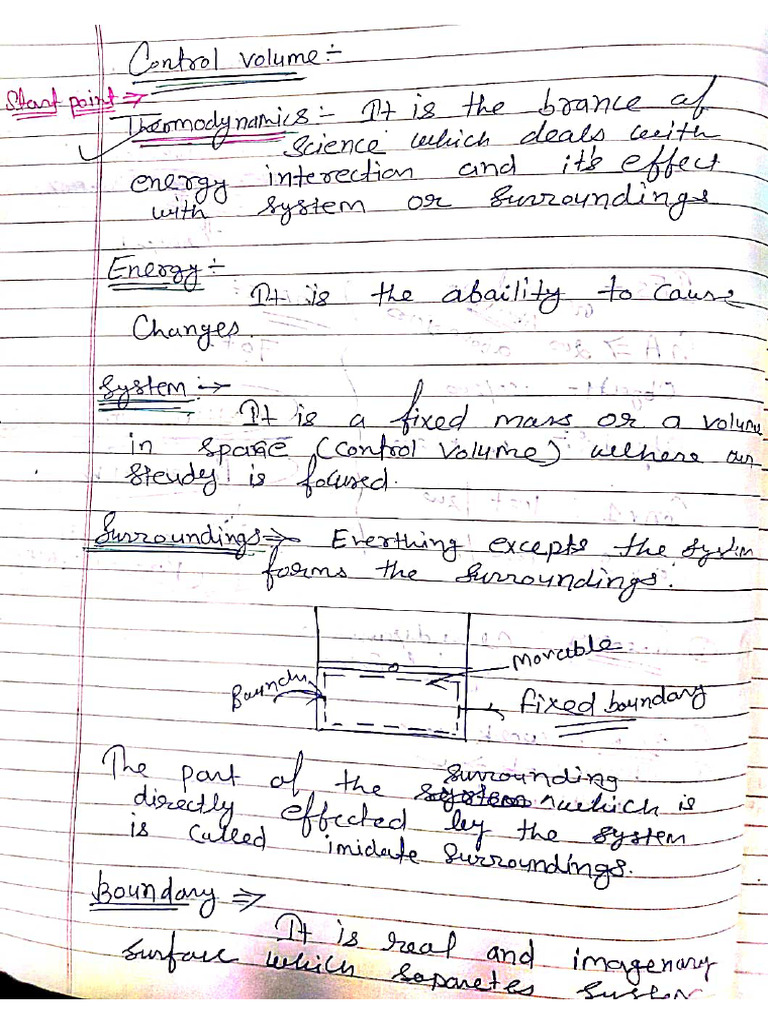 Control volume :-
Start point ⇒
Thermodynamics :- It is the brance of
science which deals with
energy interection and it's effect
with system or surroundings
Energy :-
It is the abaility to cause
Changes.
System :→
It is a fixed mass or a volume
in space (Control Volume) where our
steudy is focused.
Surroundings ⇒ Everthing excepts the system
forms the surroundings.
Movable
Boundry
fixed boundary
The part of the surrounding which is
directly effected by the system
is called imidate surroundings.
Boundary ⇒
It is real and imagenary
surface which saparetes system